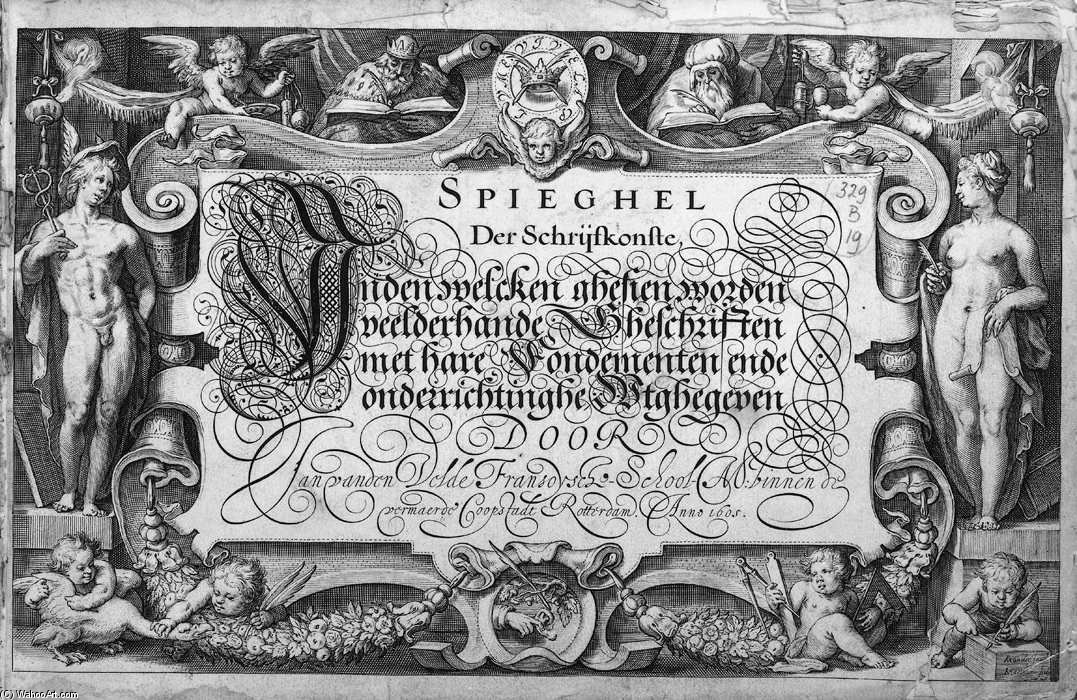 SPIEGHEL
Der Schrijfkonste,
Inden welcken ghesien worden
veelderhande Gheschriften
met hare Fondementen ende
onderrichtinghe Wtghegeven
DOOR
Jan vanden Velde Fransoysche-School-M: binnen de
vermaerde Coopstadt Rotterdam. Anno 1605.
1329
B
19
(C) WahooArt.com